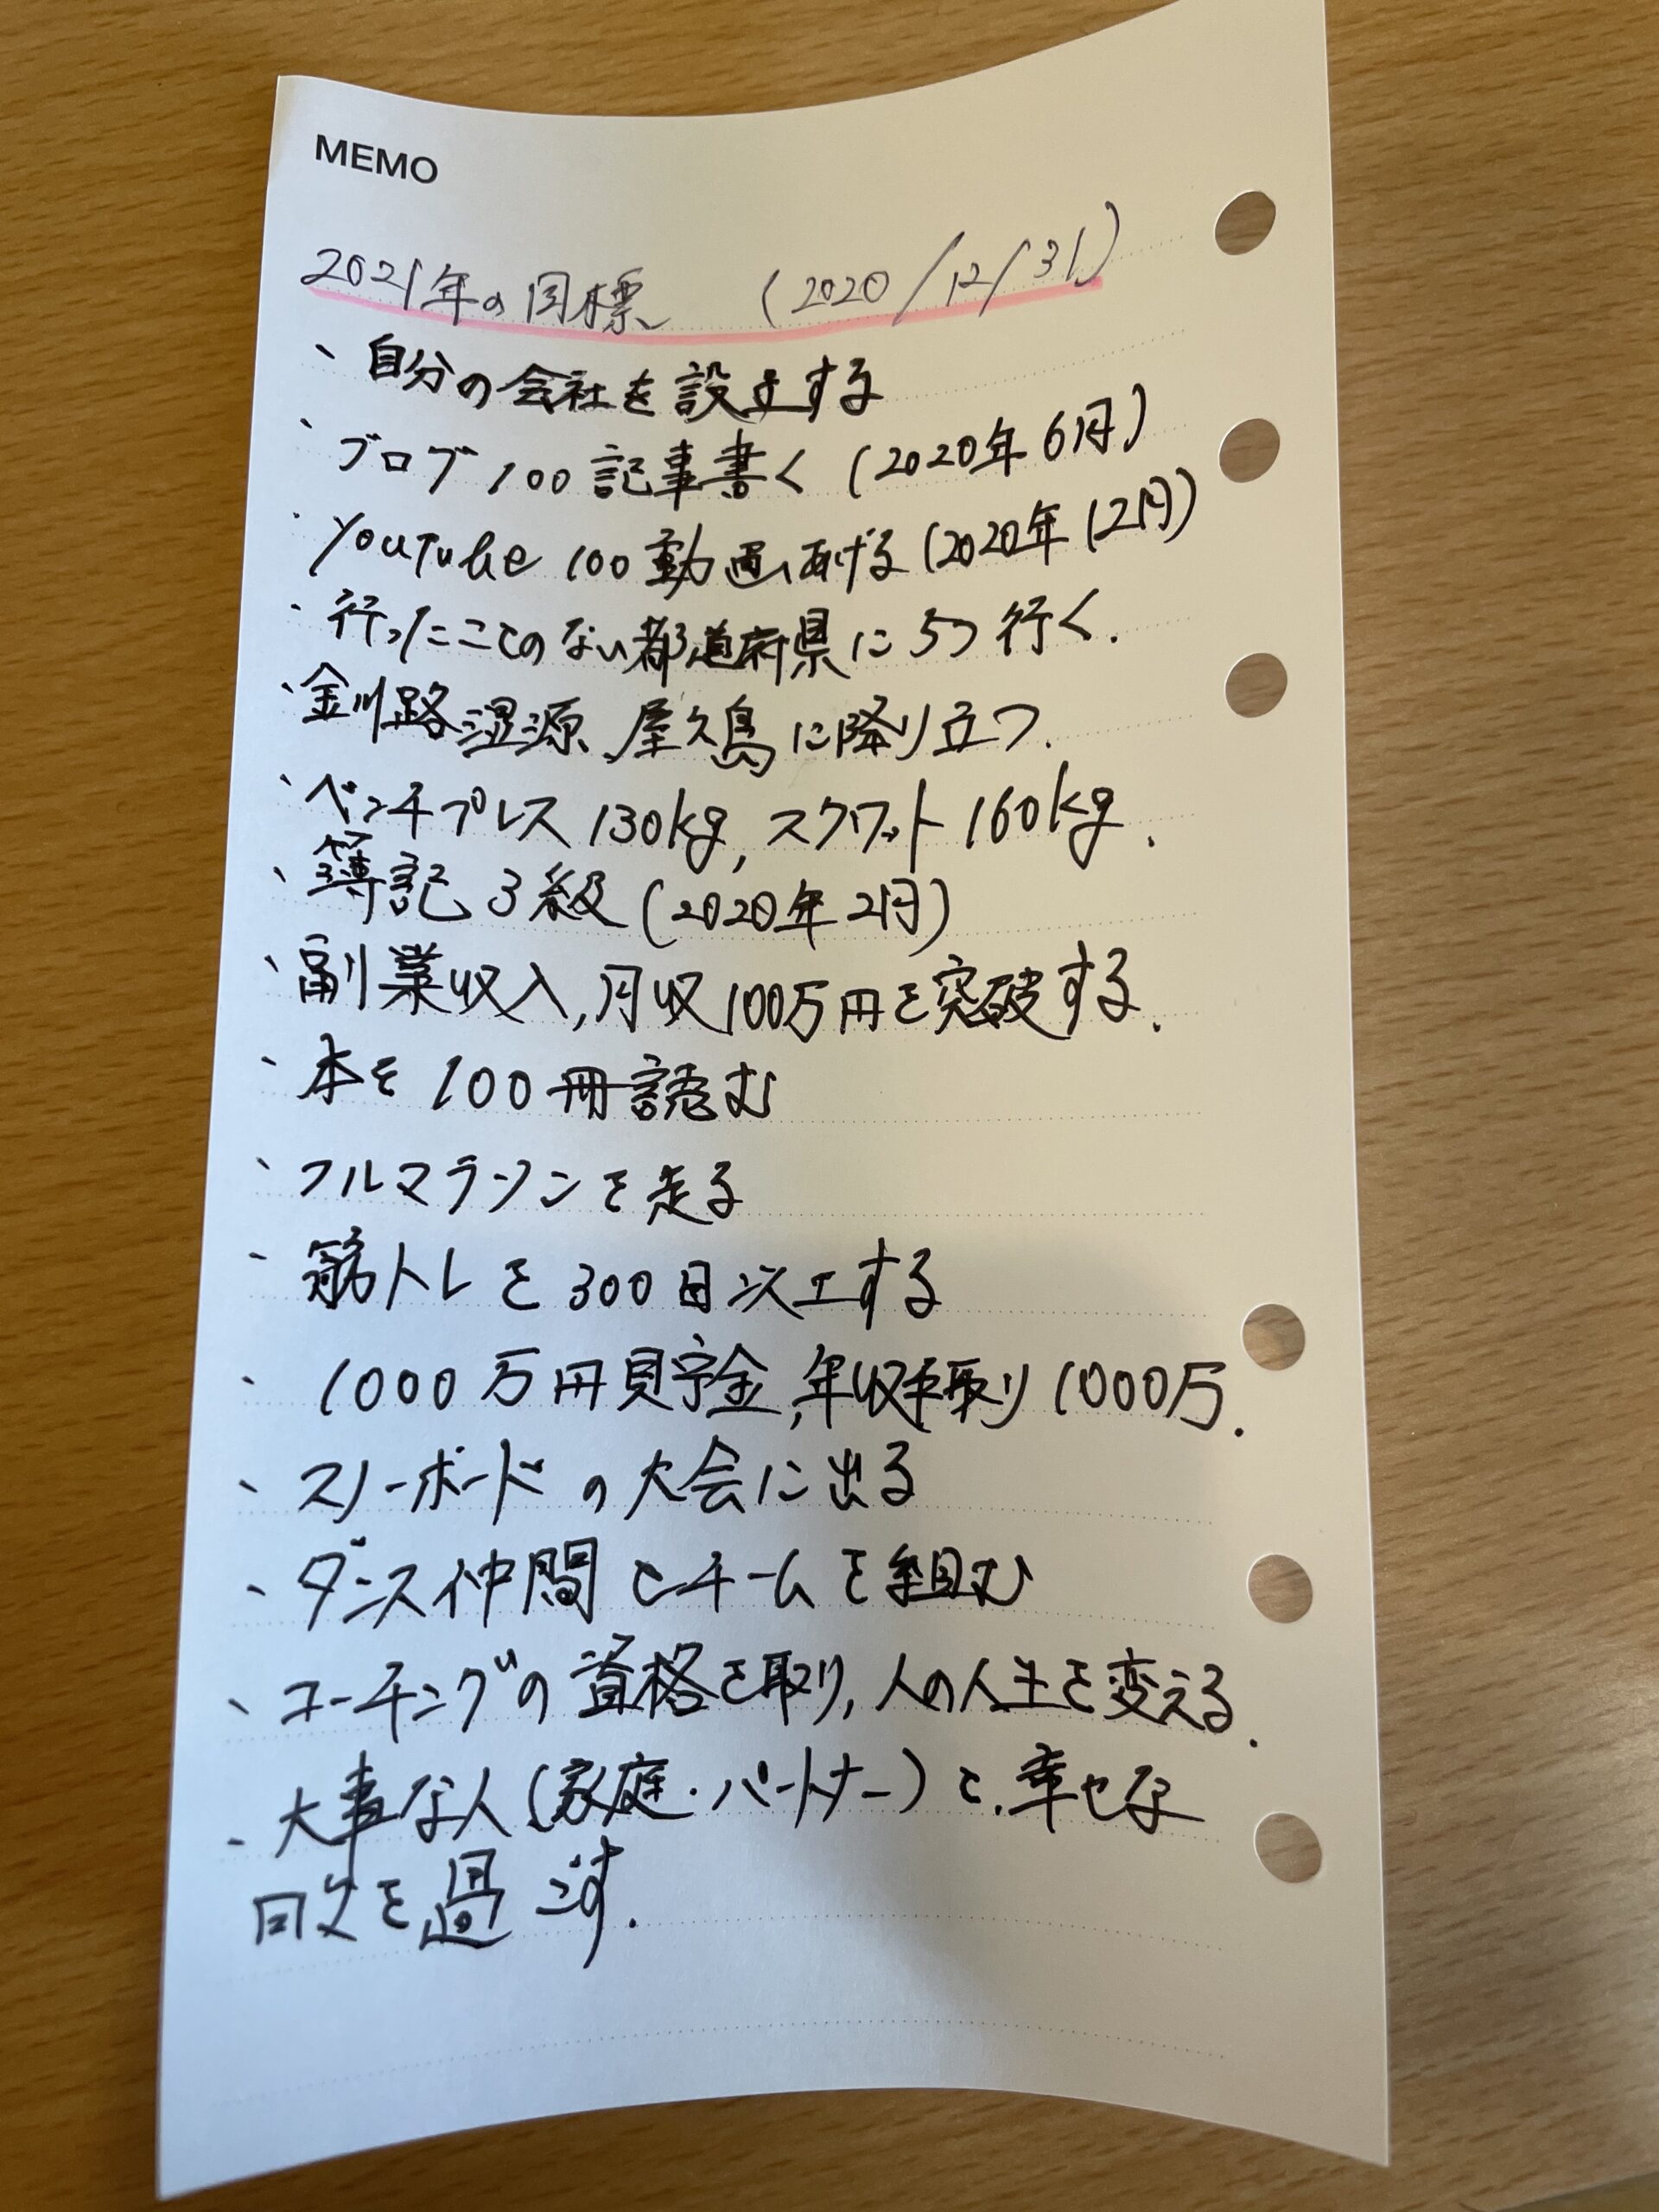 MEMO
2021年の目標 (2020/12/31)
、自分の会社を設立する
、ブログ100記事書く (2020年6月)
、YouTube 100動画あげる (2020年12月)
、行ったことのない都道府県に5つ行く.
、釧路湿原、屋久島に降り立つ.
、ベンチプレス130kg, スクワット160kg.
、簿記3級 (2020年2月)
、副業収入, 月収100万円を突破する.
、本を100冊読む
、フルマラソンを走る
、筋トレを300日以上する
、1000万円貯金, 年収手取り1000万.
、スノーボードの大会に出る
、ダンス仲間とチームを組む
、コーチングの資格を取り, 人の人生を変える.
、大事な人(家庭・パートナー)と, 幸せな
日々を過ごす.